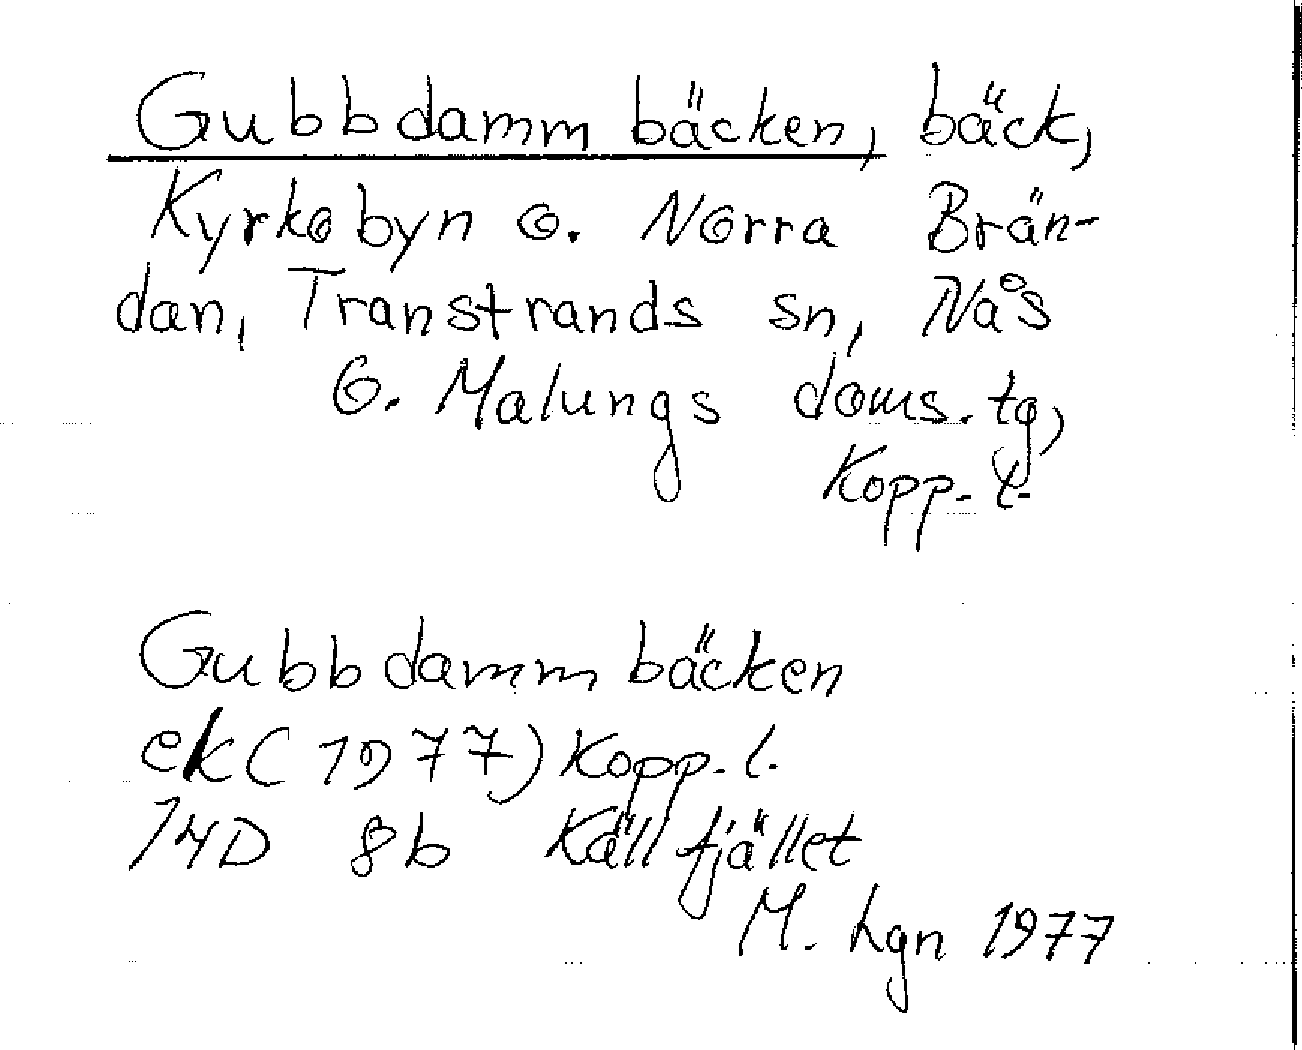 Gubbdammbäcken, bäck,
Kyrkobyn o. Norra Brän-
dan, Transtrands sn, Nås
o. Malungs doms. tg,
Kopp. l.
Gubbdammbäcken
ek (1977) Kopp. l.
14D 8b Källfjället
M. Lgn 1977